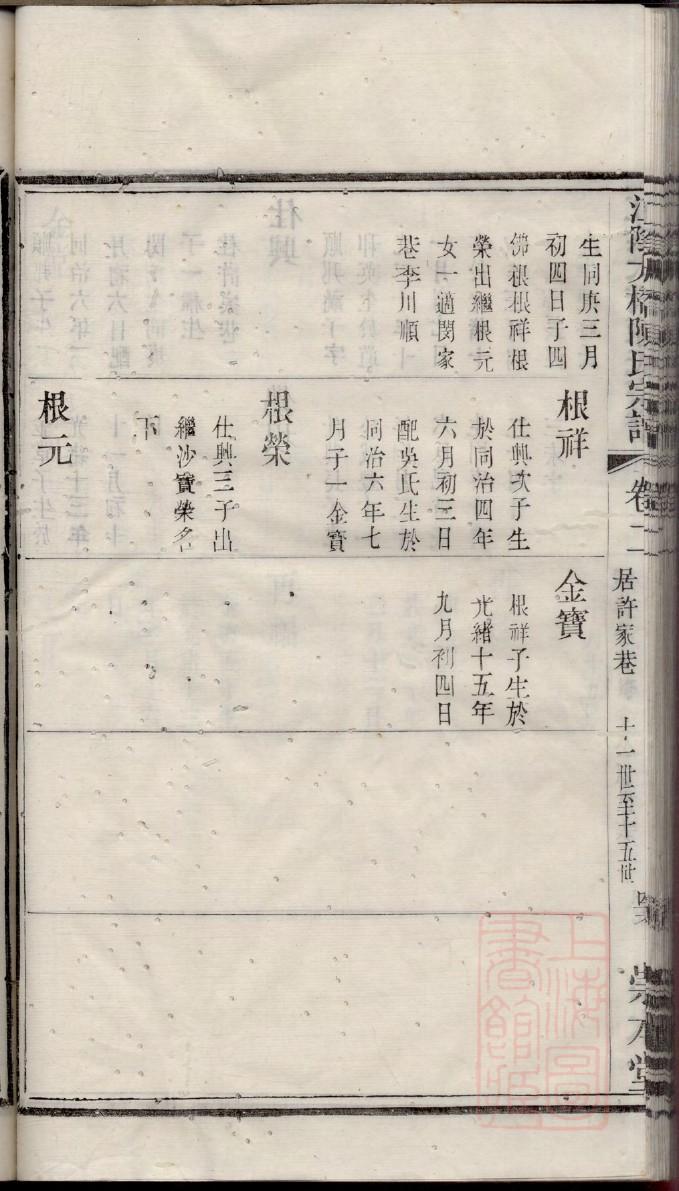 生同庚三月
初四日子四
佛根根祥根
榮出繼根元
女一適閔家
巷李川順
根祥
仕興次子生
於同治四年
六月初三日
配吳氏生於
同治六年七
月子一金寶
根榮
仕興三子出
繼沙寶榮名
下
根元
金寶
根祥子生於
光緒十五年
九月初四日
氏宗譜
卷二
居許家巷
十一世至十五世
崇本堂
上海圖書館